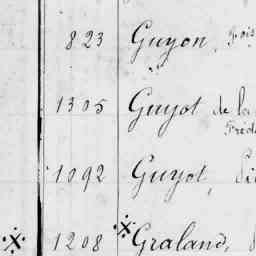 823 Guyon, Fois
1305 Guyot de la
Fred
1092 Guyot,
1208 Graland,